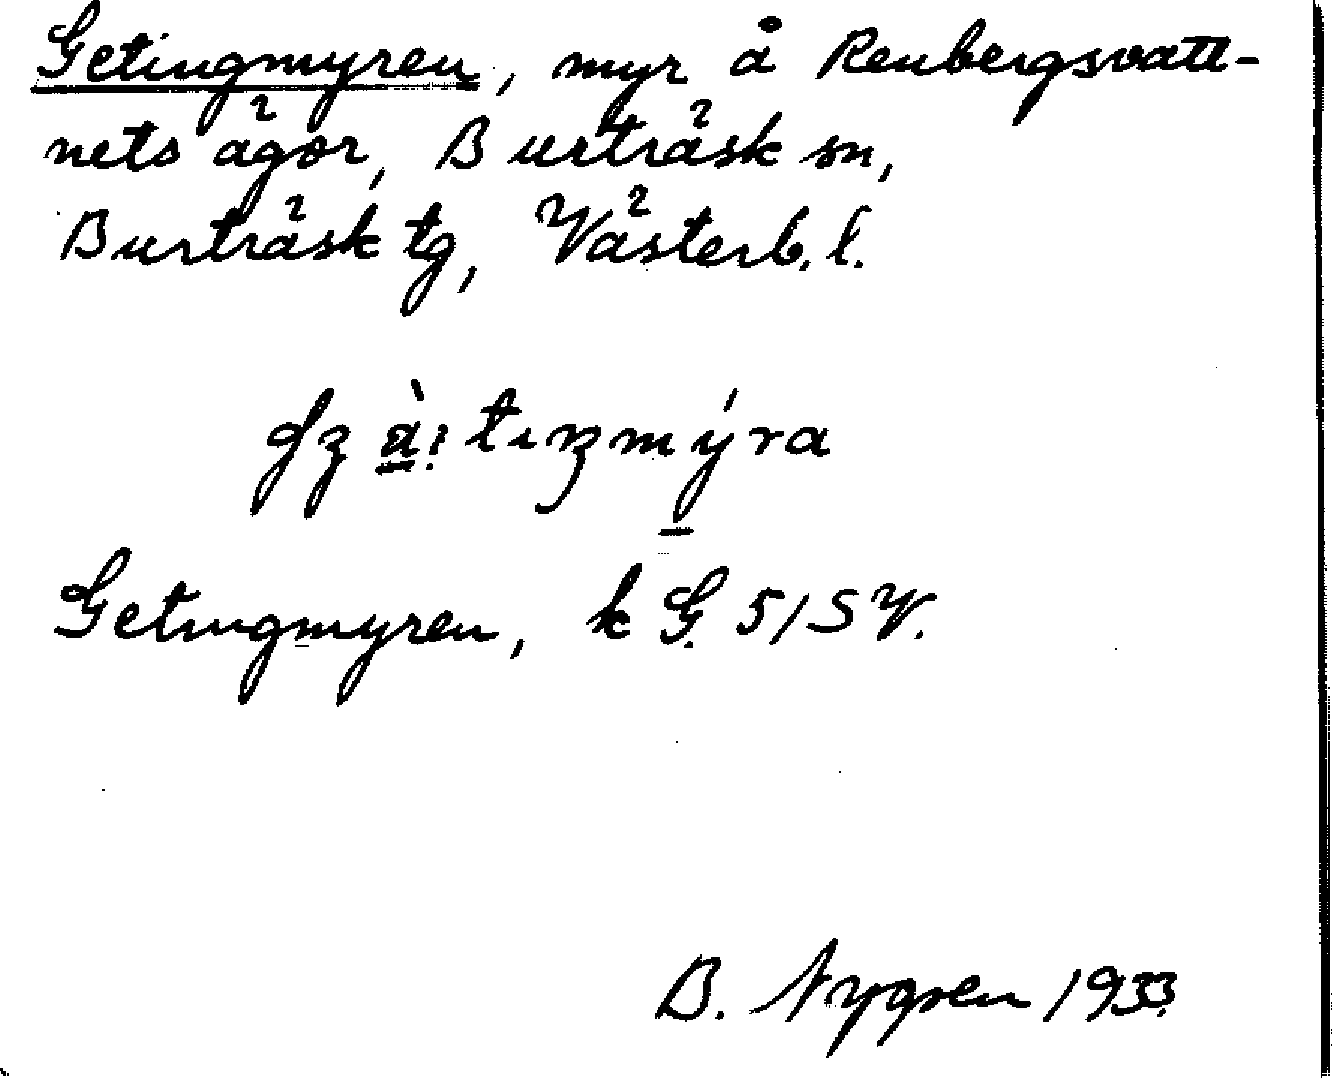 Getingmyren, myr å Renbergsvatt-
nets ägor, Burträsk sn,
Burträsk tg, Västerb. l.
Getingmyren, k G. 5/SV.
B. Nygren 1933